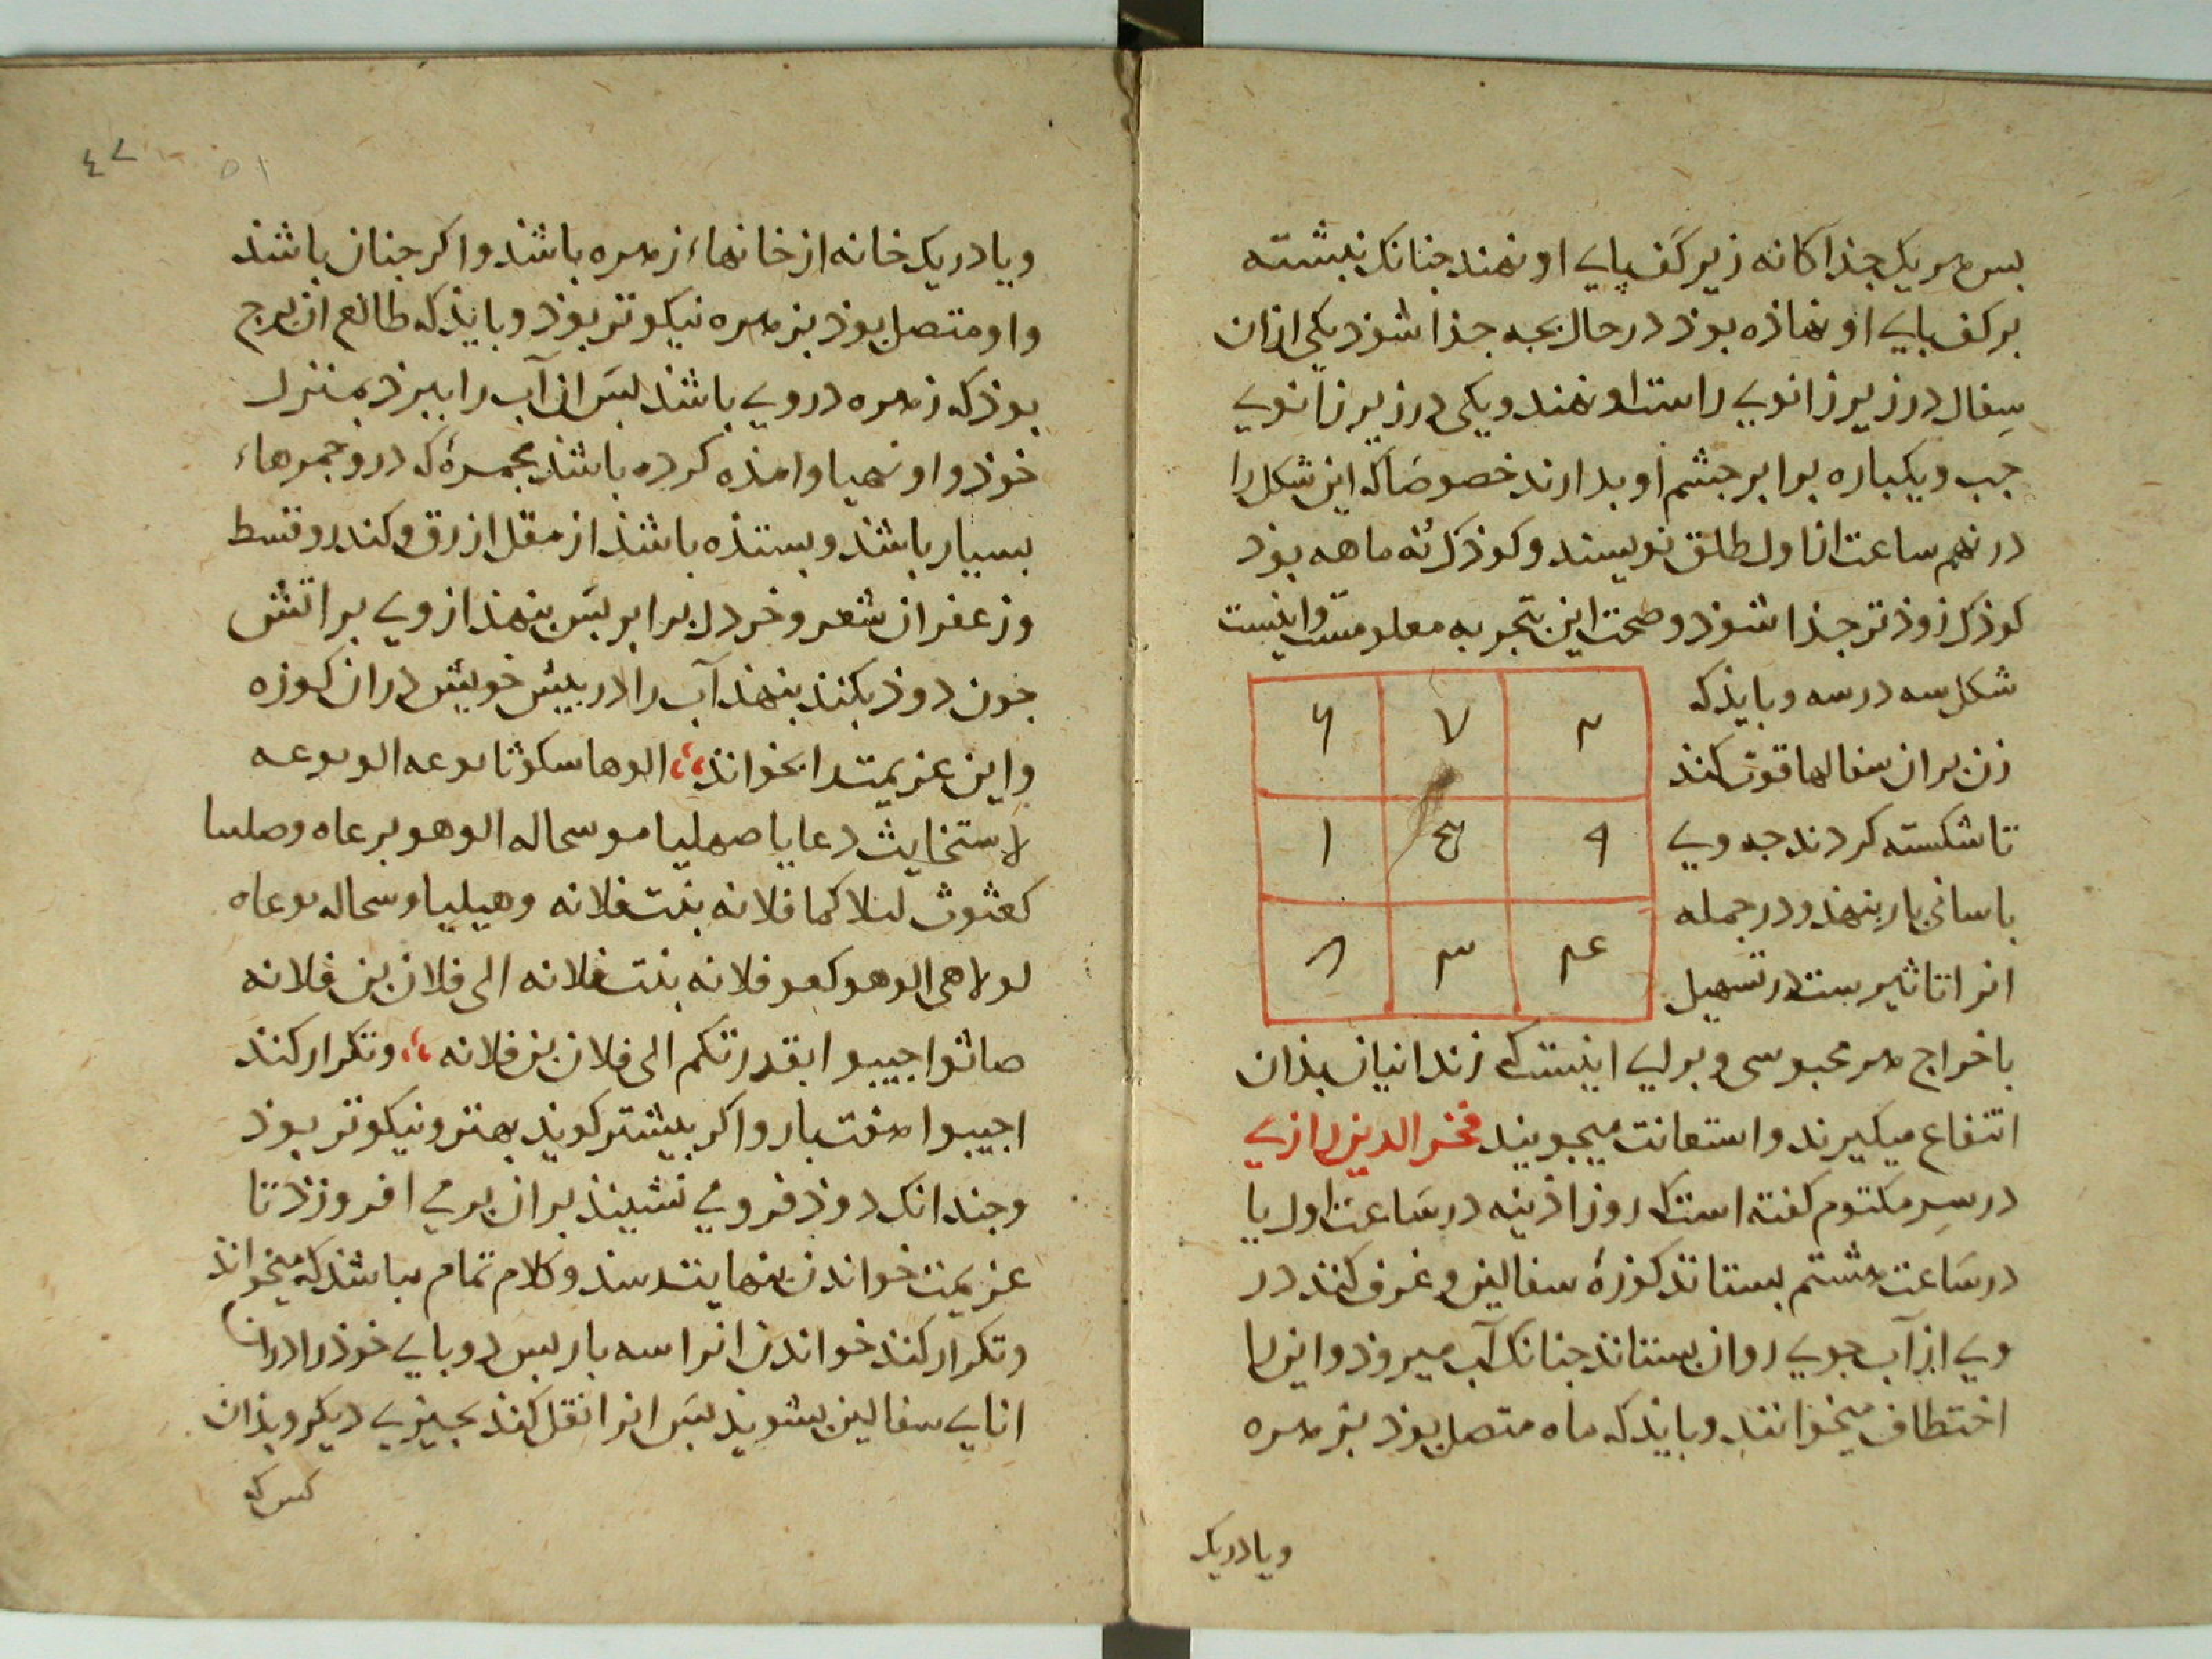 بس هر یک جذاکانه زیر کف پای او نهند جنانک نبشته
بر کف بای او نهاذه بوذ در حال بجه جذا شوذ یکی ازان
سفال در زیر زانوی راست او نهند و یکی در زیر زانوی
جب و یکباره برابر جشم او بدارند خصوصا که این شکل را
در نهم ساعت از اول طلق نویسند و کوذک نه ماهه بوذ
کوذک زوذتر جذا شوذ و صحت این بتجربه معلومست و اینست
شکل سه در سه و بایذ که
زن بر ان سفالها قوت کند
تا شکسته کردند جه وی
باسانی بار بنهذ و در جمله
انرا تاثیریست در تسهیل
۲ ۷ ۶
۹ ۵ ۱
۴ ۳ ۸
باخراج هر محبوسی و برای اینست که زندانیان بذان
انتفاع میکیرند و استعانت میجویند فخر الدین رازی
در سر مکتوم کفته است که روز اذینه در ساعت اول یا
در ساعت هشتم بستانذ کوزۀ سفالین و غرف کنذ در
وی از آب جوی روان بستانذ جنانک آب میروذ و این را
اختطاف میخوانند و بایذ که ماه متصل بوذ بزهره
و یا در یک
و یا در یک خانه از خانهاء زهره باشذ و اکر جنان باشذ
و او متصل بوذ بزهره نیکوتر بوذ و بایذ که طالع ان برج
بوذ که زهره در وی باشذ بس ان آب را ببرذ بمنزل
خوذ و او مهیا و امذه کرده باشذ مجمرۀ که درو جمرهاء
بسیار باشذ و بستذه باشذ از مقل ازرق و کندر و قسط
و زعفران شعر و خردل برابر بس بنهذ از وی بر اتش
جون دوذ بکنذ بنهذ آب را در بیش خویش در ان کوزه
و این عزیمت را بخوانذ الوها سکوثا بوعه الوبوعه
لاستخایث دعایا صهلیا موسحاله الوهو برعاه وصلسا
کعثوث لىلا کما فلانه بنت فلانه وهیلیا وسحاله بوعاه
لولاهی الوهو کعو فلانه بنت فلانه الی فلان بن فلانه
صاثوا جیبوا بقدرتکم الی فلان بن فلانه و تکرار کند
اجیبوا هفت بار و اکر بیشتر کویذ بهتر و نیکوتر بوذ
و جندانک دوذ فرو می نشینذ بر ان بر می افروزذ تا
عزیمت خواندن بنهایت رسذ و کلام تمام باشذ که میخوانذ
و تکرار کنذ خواندن انرا سه بار بس دو بای خوذ را در ان
انای سفالین بشویذ بس انرا نقل کنذ بجیزی دیکر و بذان
کس که